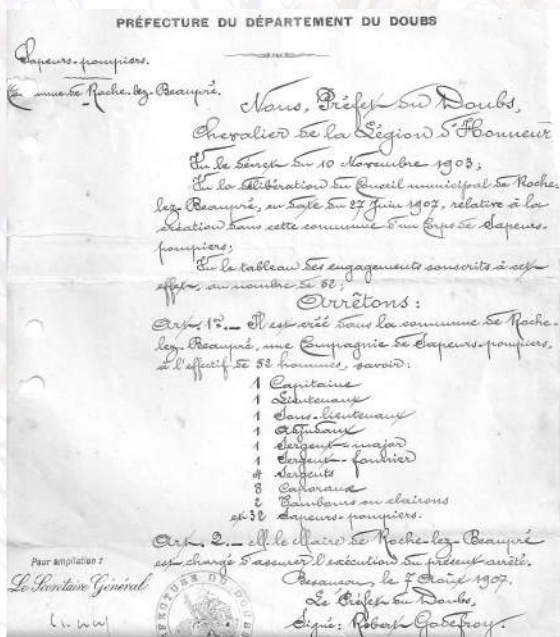 PRÉFECTURE DU DÉPARTEMENT DU DOUBS
Sapeurs-pompiers.
Commune de Roche-lez-Beaupré.
Nous, Préfet du Doubs,
Chevalier de la Légion d'Honneur
Vu le décret du 10 Novembre 1903;
Vu la délibération du Conseil municipal de Roche-
lez-Beaupré, en date du 27 Juin 1907, relative à la
création dans cette commune d'un Corps de Sapeurs-
pompiers;
Vu le tableau des engagements souscrits à cet
effet, au nombre de 52;
Arrêtons:
Art. 1er._ Il est créé dans la commune de Roche-
lez-Beaupré, une Compagnie de Sapeurs-pompiers,
à l'effectif de 52 hommes, savoir:
1 Capitaine
1 Lieutenant
1 Sous-lieutenant
1 Adjudant
1 Sergent-major
1 Sergent-fourrier
4 Sergents
8 Caporaux
2 Tambours ou clairons
et 32 Sapeurs-pompiers.
Art. 2._ M. le Maire de Roche-lez-Beaupré
est chargé d'assurer l'exécution du présent arrêté.
Besançon, le 7 Août 1907.
Le Préfet du Doubs,
Signé: Robert Godefroy.
Pour ampliation:
Le Secrétaire Général
PRÉFECTURE DU DOUBS